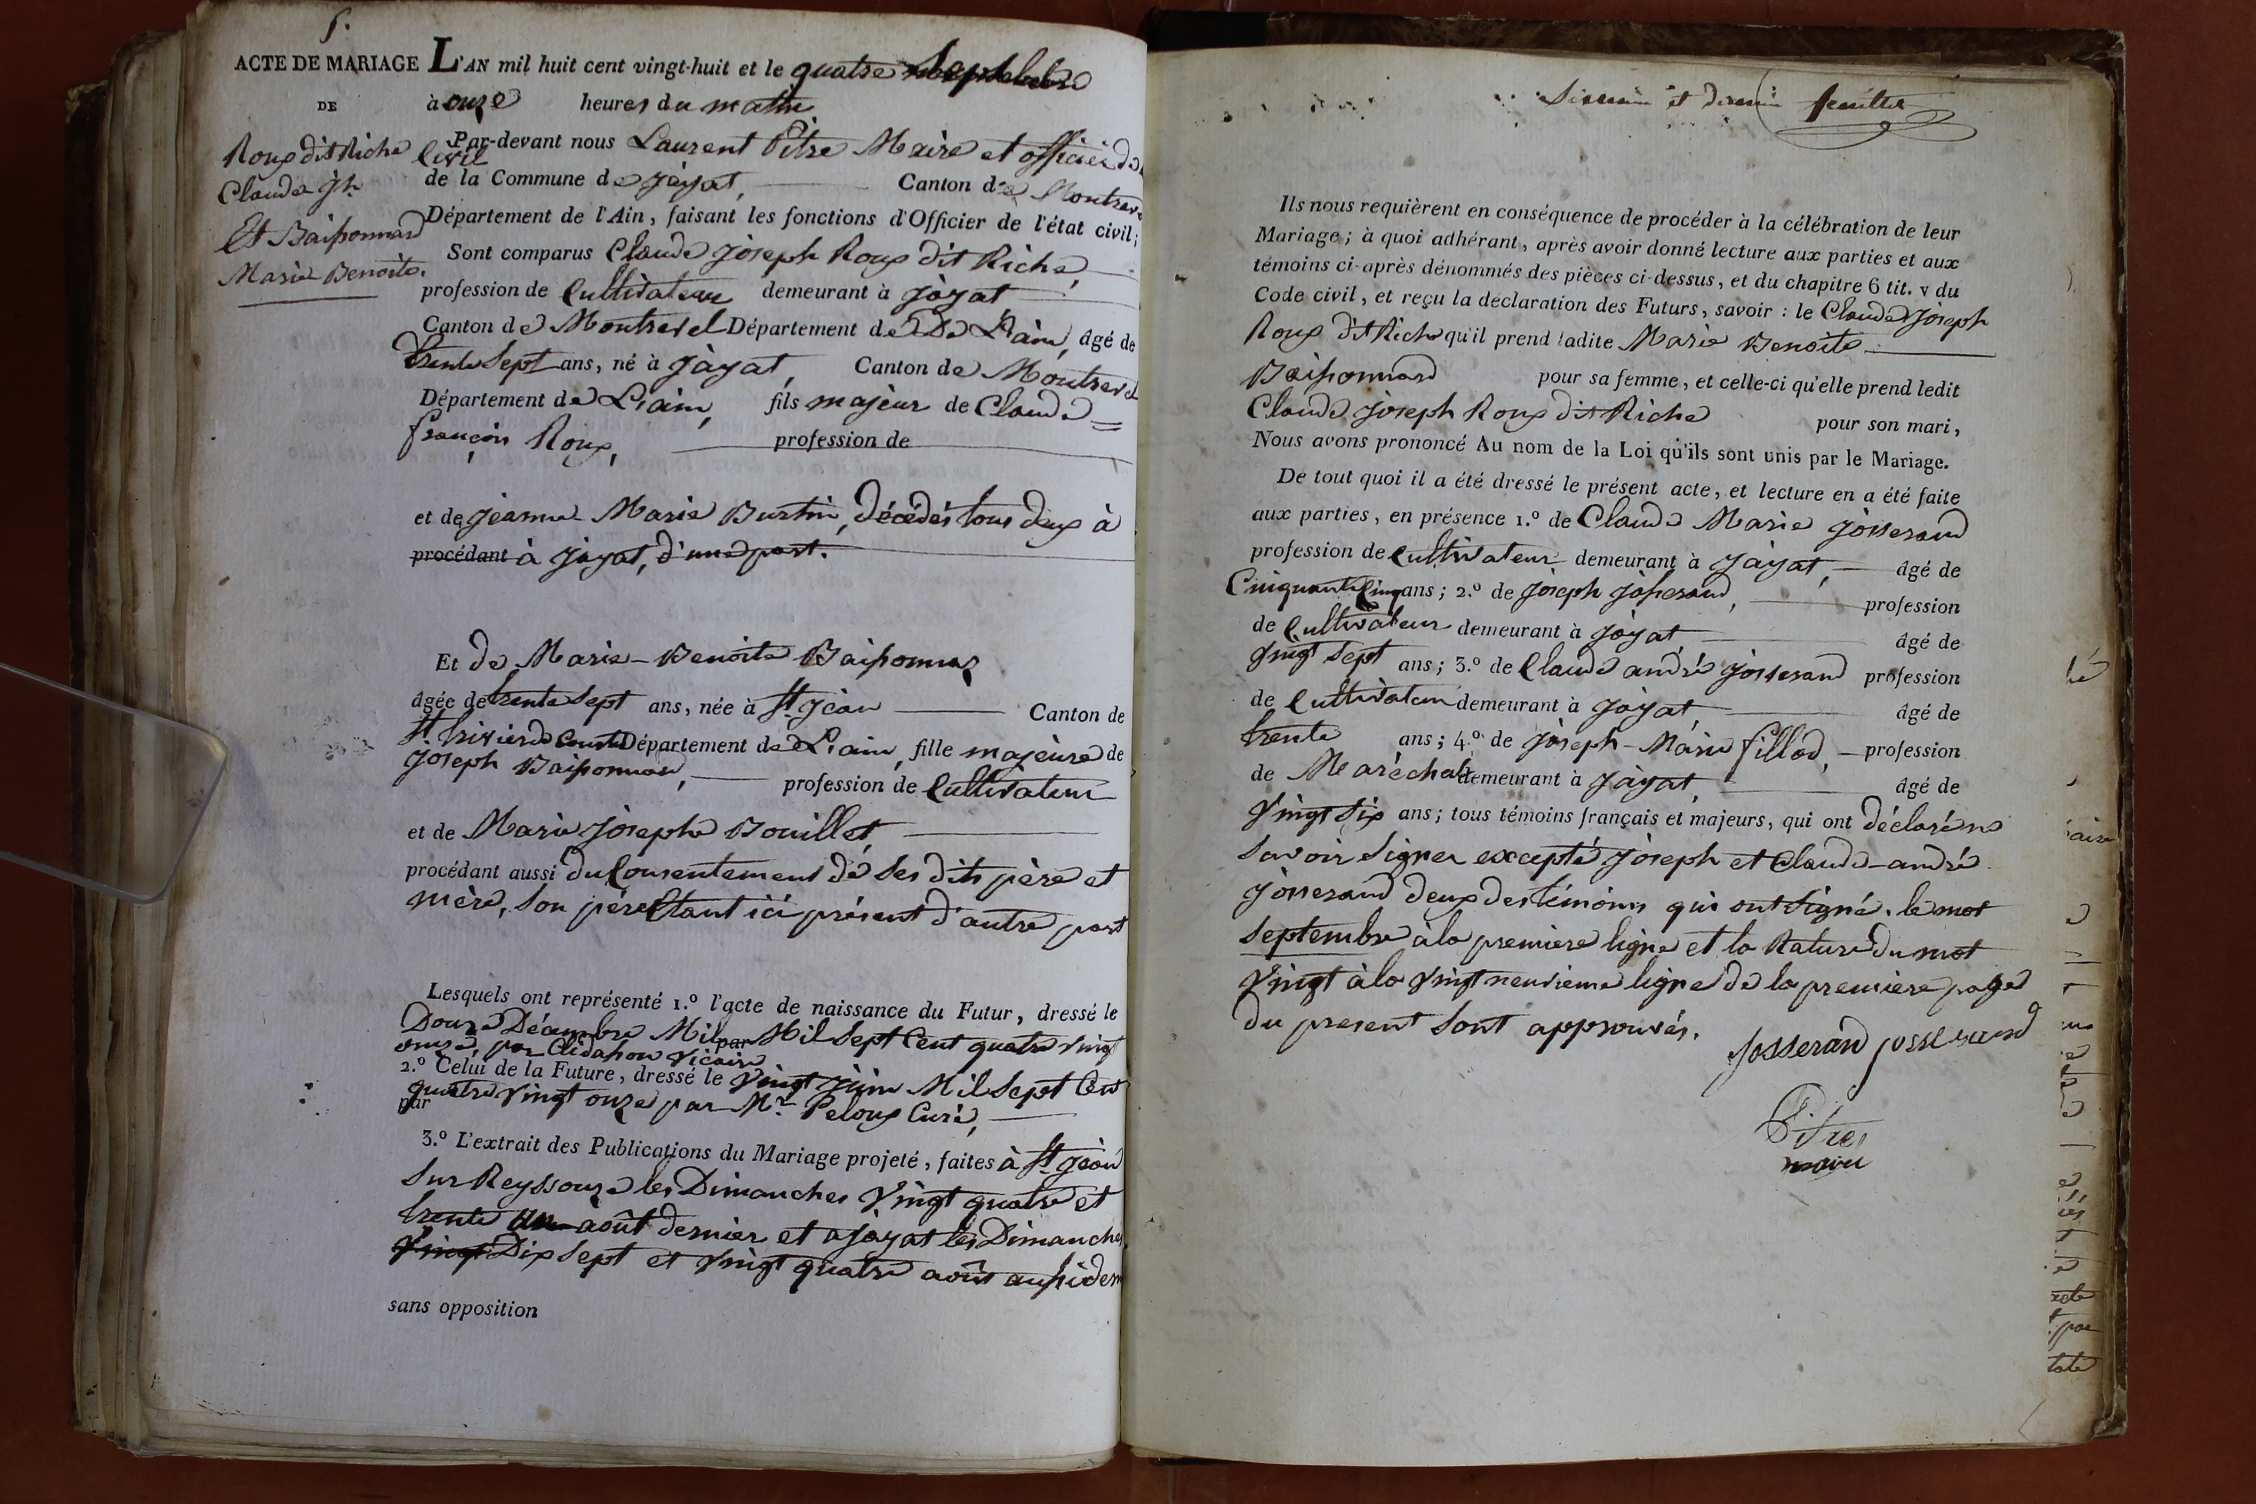 5.
ACTE DE MARIAGE
DE
Roux dit Riche
Claude Jh.
Et Baissonnard
Marie Benoite.
L'AN mil huit cent vingt-huit et le quatre Septembre
à onze heures du matin
Par-devant nous Laurent Pitre Maire et officier de
Civil
de la Commune de Jayat, Canton de Montrevel
Département de l'Ain, faisant les fonctions d'Officier de l'état civil;
Sont comparus Claude Joseph Roux dit Riche,
profession de Cultivateur demeurant à Jayat
Canton de Montrevel Département de De L'ain, âgé de
trente Sept ans, né à Jayat, Canton de Montrevel
Département de L'ain, fils majeur de Claude =
françois Roux, profession de
et de jeanne Marie Burtin, décédés tous deux à
procédant à Jayat, d'une part.
Et de Marie-Benoite Baissonnard
âgée de trente Sept ans, née à St Jean Canton de
St. trivier de Courtes Département de L'ain, fille majeure de
Joseph Baissonnard, profession de Cultivateur
et de Marie Josephe Bouillet,
procédant aussi du Consentement de Ses dits père et
mère, Son père Etant ici présent d'autre part
Lesquels ont représenté 1.º l'acte de naissance du Futur, dressé le
Douze Décembre Mil par Mil Sept Cent quatre vingt
onze, par Vicaire
2.º Celui de la Future, dressé le Vingt juin Mil Sept Cent
par quatre vingt onze par Mr. Peloux Curé,
3.º L'extrait des Publications du Mariage projeté, faites à St Jean
Sur Reyssouze les Dimanches Vingt quatre et
trente un août dernier et a Jayat les Dimanches
Vingt Dix Sept et vingt quatre août aussi dern
sans opposition
Sixieme et dernier feuillet
Ils nous requièrent en conséquence de procéder à la célébration de leur
Mariage; à quoi adhérant, après avoir donné lecture aux parties et aux
témoins ci-après dénommés des pièces ci-dessus, et du chapitre 6 tit. v du
Code civil, et reçu la déclaration des Futurs, savoir: le Claude Joseph
Roux dit Riche qu'il prend ladite Marie Benoite
Baissonnard pour sa femme, et celle-ci qu'elle prend ledit
Claude Joseph Roux dit Riche pour son mari,
Nous avons prononcé Au nom de la Loi qu'ils sont unis par le Mariage.
De tout quoi il a été dressé le présent acte, et lecture en a été faite
aux parties, en présence 1.º de Claude Marie Josserand
profession de Cultivateur demeurant à Jayat, âgé de
Cinquante Cinq ans; 2.º de Joseph Josserand, profession
de Cultivateur demeurant à Jayat âgé de
vingt Sept ans; 3.º de Claude andré Josserand profession
de Cultivateur demeurant à Jayat, âgé de
trente ans; 4.º de Joseph-Marie fillod, profession
de Maréchal demeurant à Jayat, âgé de
Vingt Six ans; tous témoins français et majeurs, qui ont déclaré ne
Savoir Signer excepté Joseph et Claude-andré
Josserand deux des témoins qui ont Signé. le mot
Septembre à la premiere ligne et la Rature du mot
Vingt à la vingt neuvieme ligne de la premiere page
du present Sont approuvés.
Josserand josserand
Pitre
maire